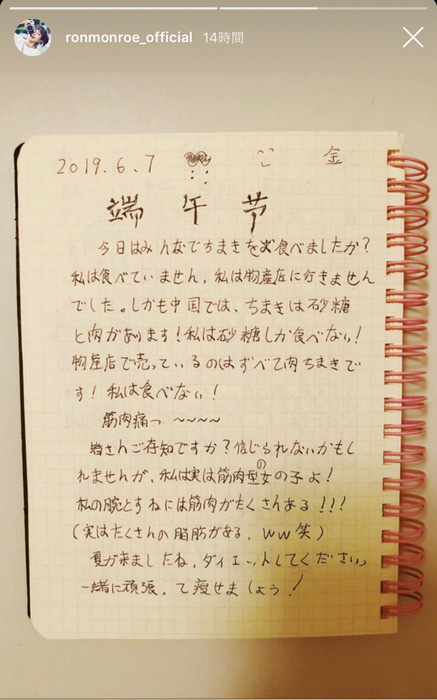 ronmonroe_official 14時間
2019.6.7 金
端午节
今日はみんなでちまきを食べましたか?
私は食べていません、私は物産店に行きません
でした。しかも中国では、ちまきは砂糖
と肉があります!私は砂糖しか食べない!
物産店で売っているのはすべて肉ちまきで
す!私は食べない!
筋肉痛っ~~~~
皆さんご存知ですか?信じられないかもし
れませんが、私は実は筋肉型の女の子よ!
私の腕とすねには筋肉がたくさんある!!!
(実はたくさんの脂肪がある、ww笑)
夏が来ましたね、ダイエットしてください。
一緒に頑張って痩せましょう!